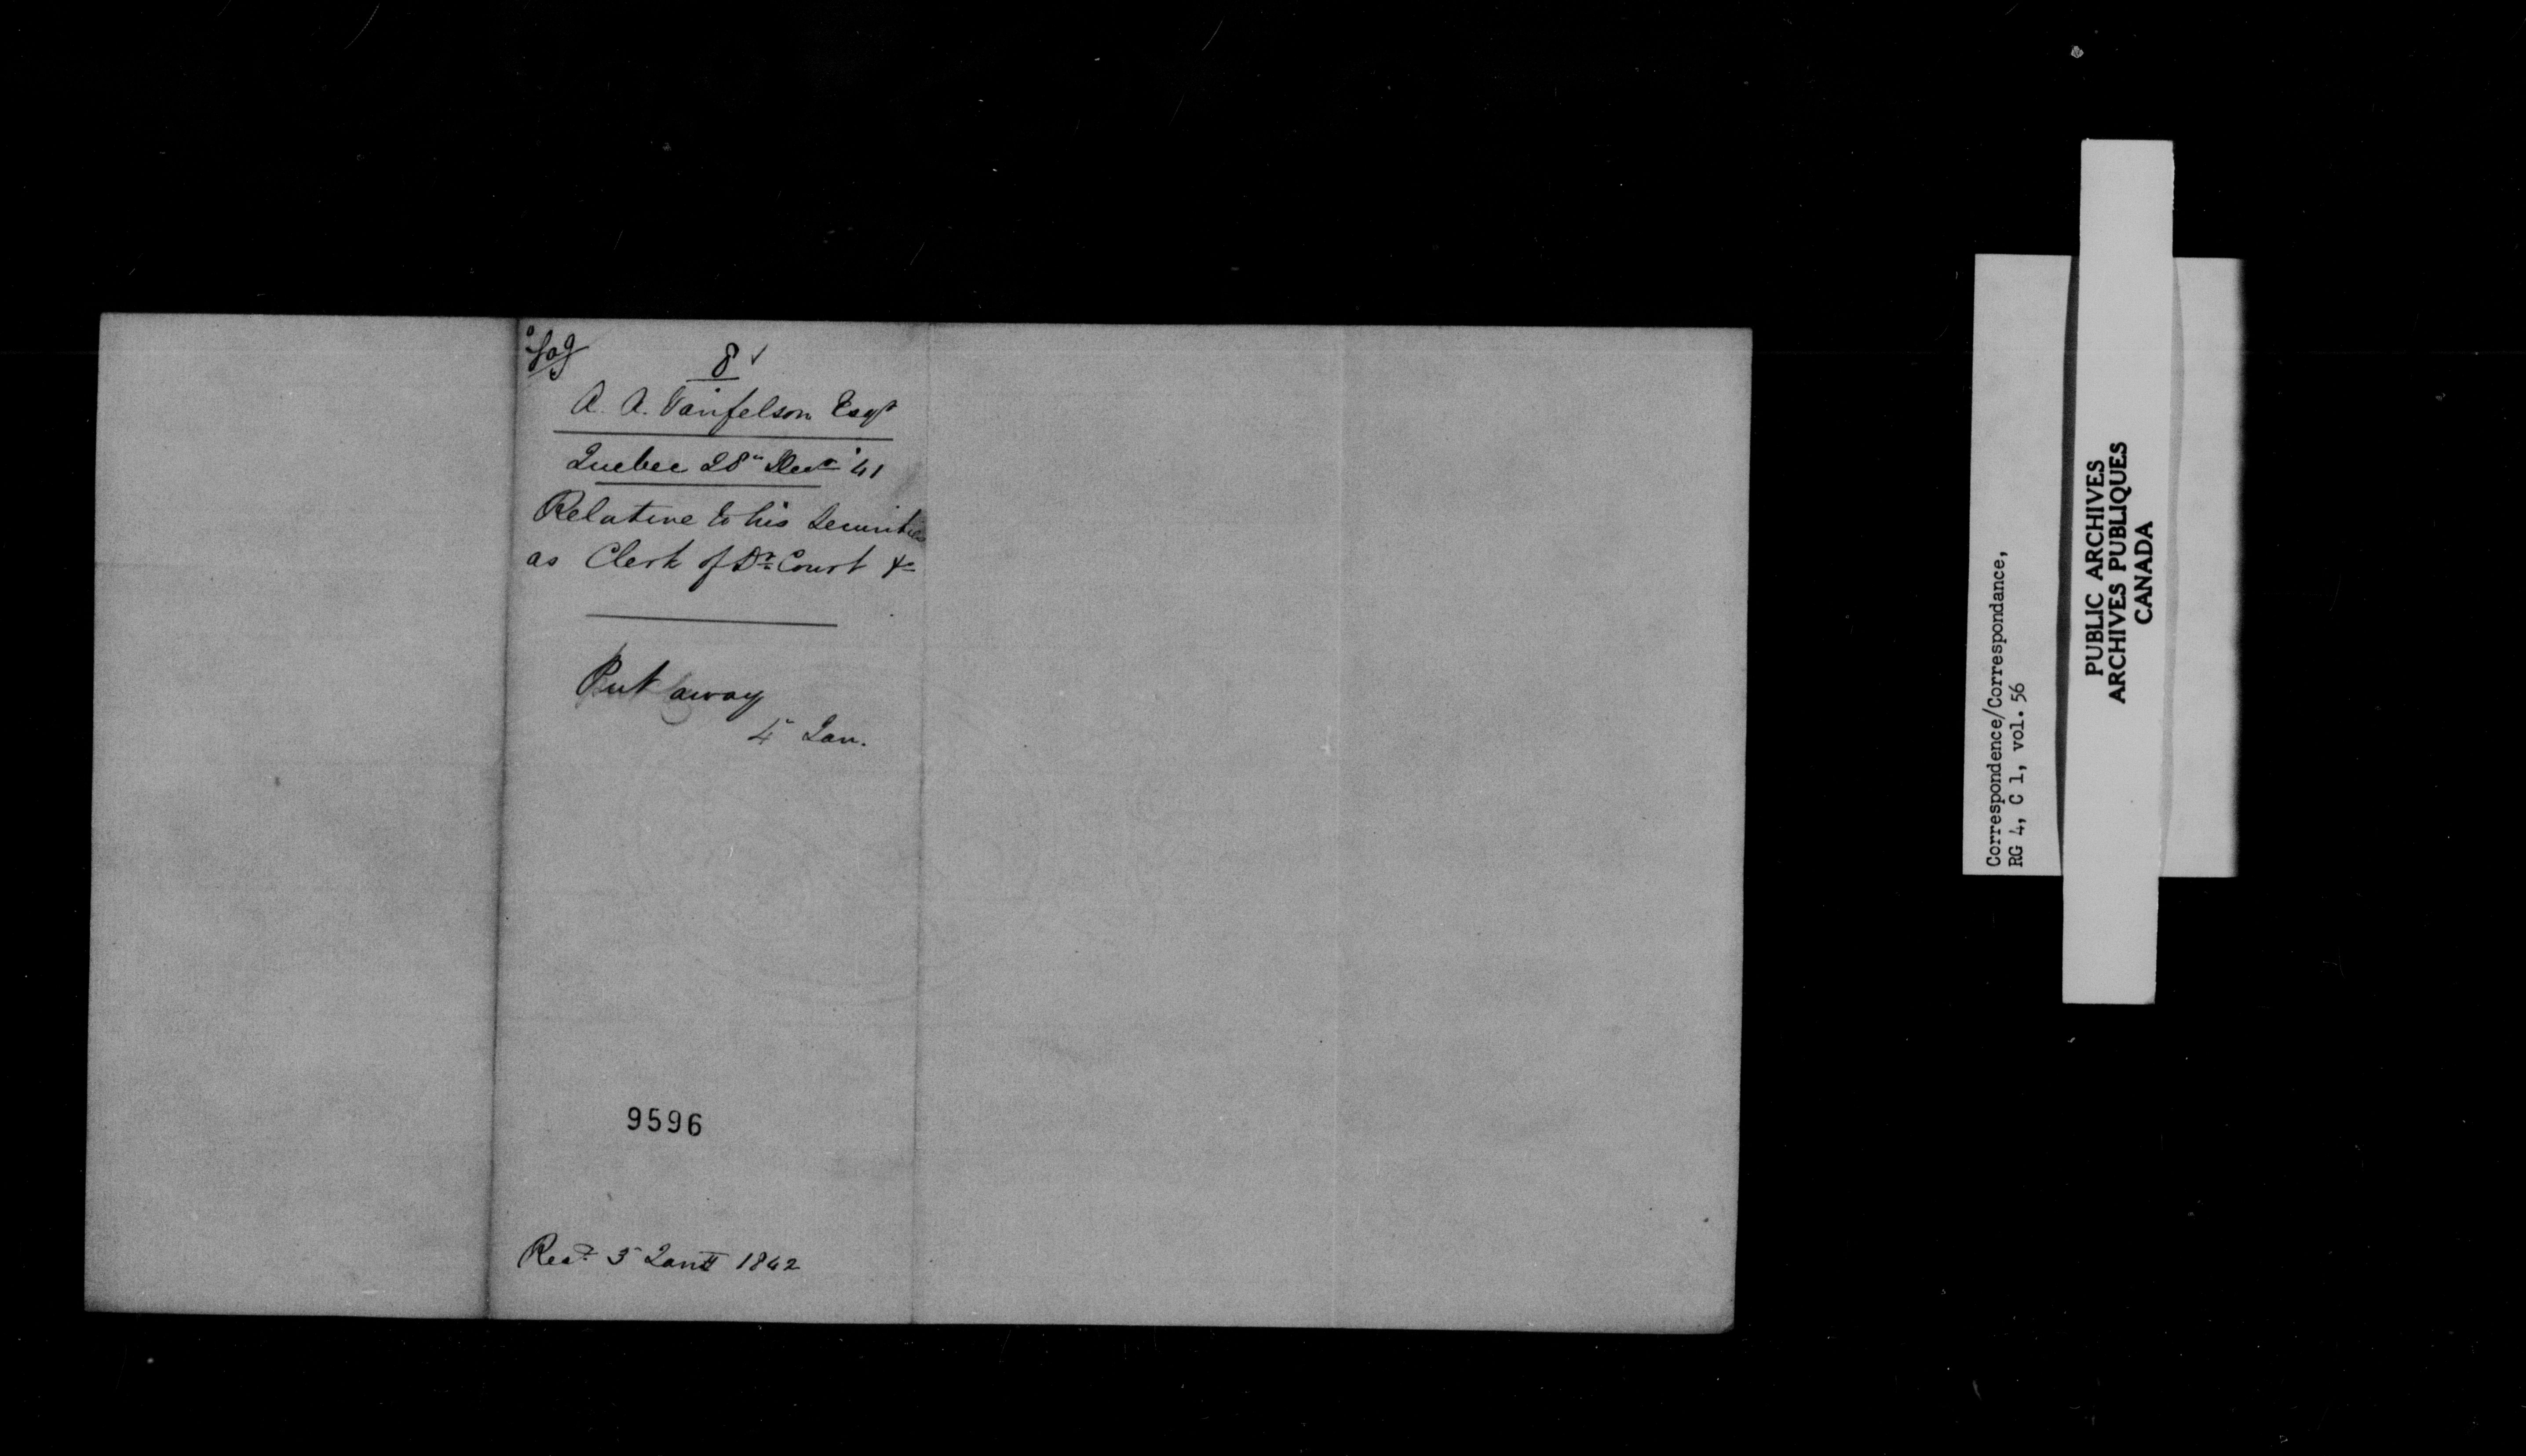 8
A. A. Vanfelson Esqr
Quebec 28" Decr '41
Relative to his Securities
as Clerk of Dt. Court &c
Put away
4" Jan.
9596
Recd. 3" Jany 1842
Correspondence/Correspondance,
RG 4, C 1, vol. 56
PUBLIC ARCHIVES
ARCHIVES PUBLIQUES
CANADA